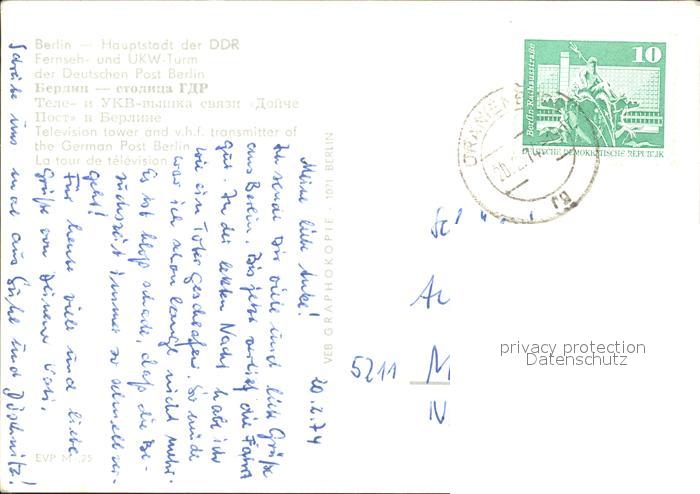 Berlin — Hauptstadt der DDR
Fernseh- und UKW-Turm
der Deutschen Post Berlin
Берлин — столица ГДР
Теле- и УКВ-вышка связи «Дойче
Пост» в Берлине
Television tower and v.h.f. transmitter of
the German Post Berlin
La tour de télévision
EVP M -,25
VEB GRAPHOKOPIE · 1071 BERLIN
20.2.74
Meine liebe Anke!
Ich sende Dir viele und liebe Grüße
aus Berlin. Bis jetzt verlief die Fahrt
gut. In der letzten Nacht habe ich
wie ein Toter geschlafen. So müde
war ich schon lange nicht mehr.
Es ist bloß schade, daß die Be-
suchszeit immer so schnell ver-
geht!
Für heute viele und liebe
Grüße von Deinem
Schreibe uns mal aus Suhl und
10
Berlin-Rathausstraße
DEUTSCHE DEMOKRATISCHE REPUBLIK
5211 M
N
privacy protection
Datenschutz